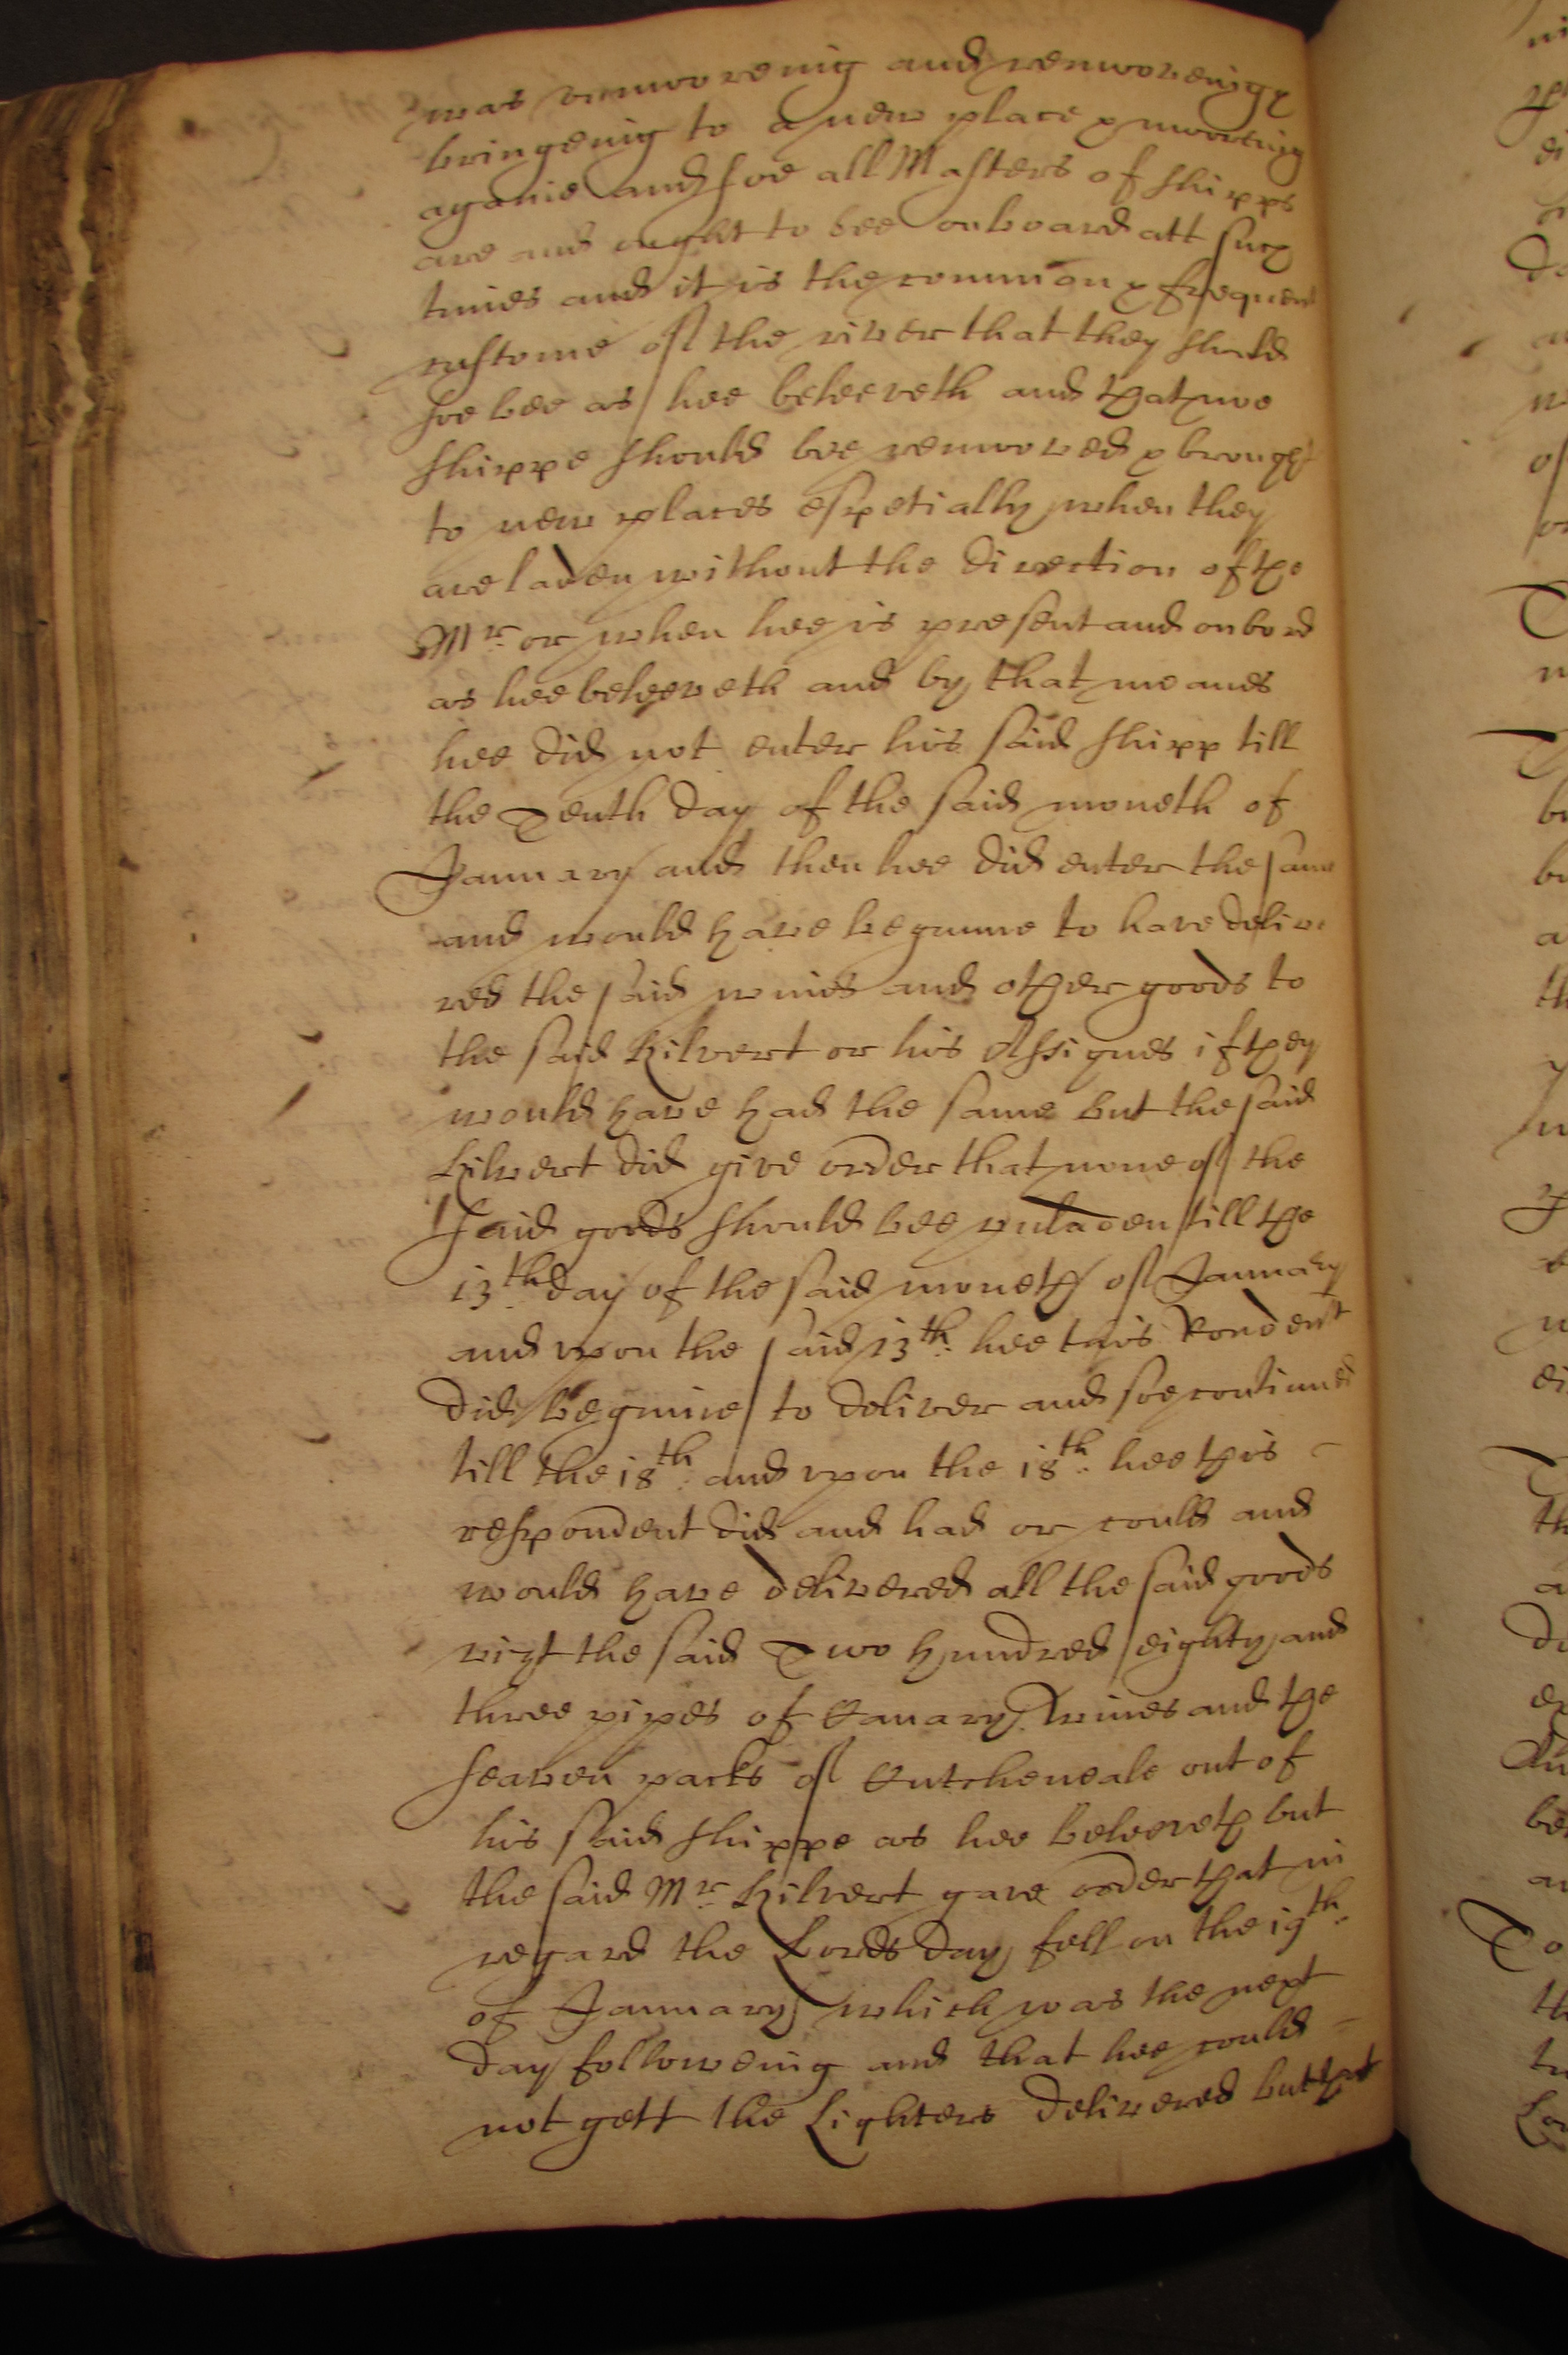 was unmooreing and remooveinge &
bringeing to a new place & mooreing
againe and soe all Masters of shipps
are and ought to bee onboard att such
times and it is the common & frequent
custome of the river that they should
soe bee as hee beleeveth and that noe
shippe should bee remooved & brought
to new places espetially when they
are laden without the direction of the
Mr. or when hee is present and onbord
as hee beleeveth and by that meanes
hee did not enter his said shipp till
the Tenth day of the said moneth of
January and then hee did enter the same
and would have begunne to have delive
red the said wines and other goods to
the said Kilvert or his Assignes if they
would have had the same but the said
Kilvert did give order that none of the
said goods should bee unladen till the
13th. day of the said moneth of January
and upon the said 13th. hee this Rondent
did beginne to deliver and soe continued
till the 18th. and upon the 18th. hee this
respondent did and had or could and
would have delivered all the said goods
vizt the said Two hundred eighty and
three pipes of Canary wines and the
seaven packs of Cutcheneale out of
his said shippe as hee beleeveth but
the said Mr. Kilvert gave order that in
regard the Lords day fell on the 19th.
of January which was the next
day followeing and that hee could
not gett the Lighters delivered but that